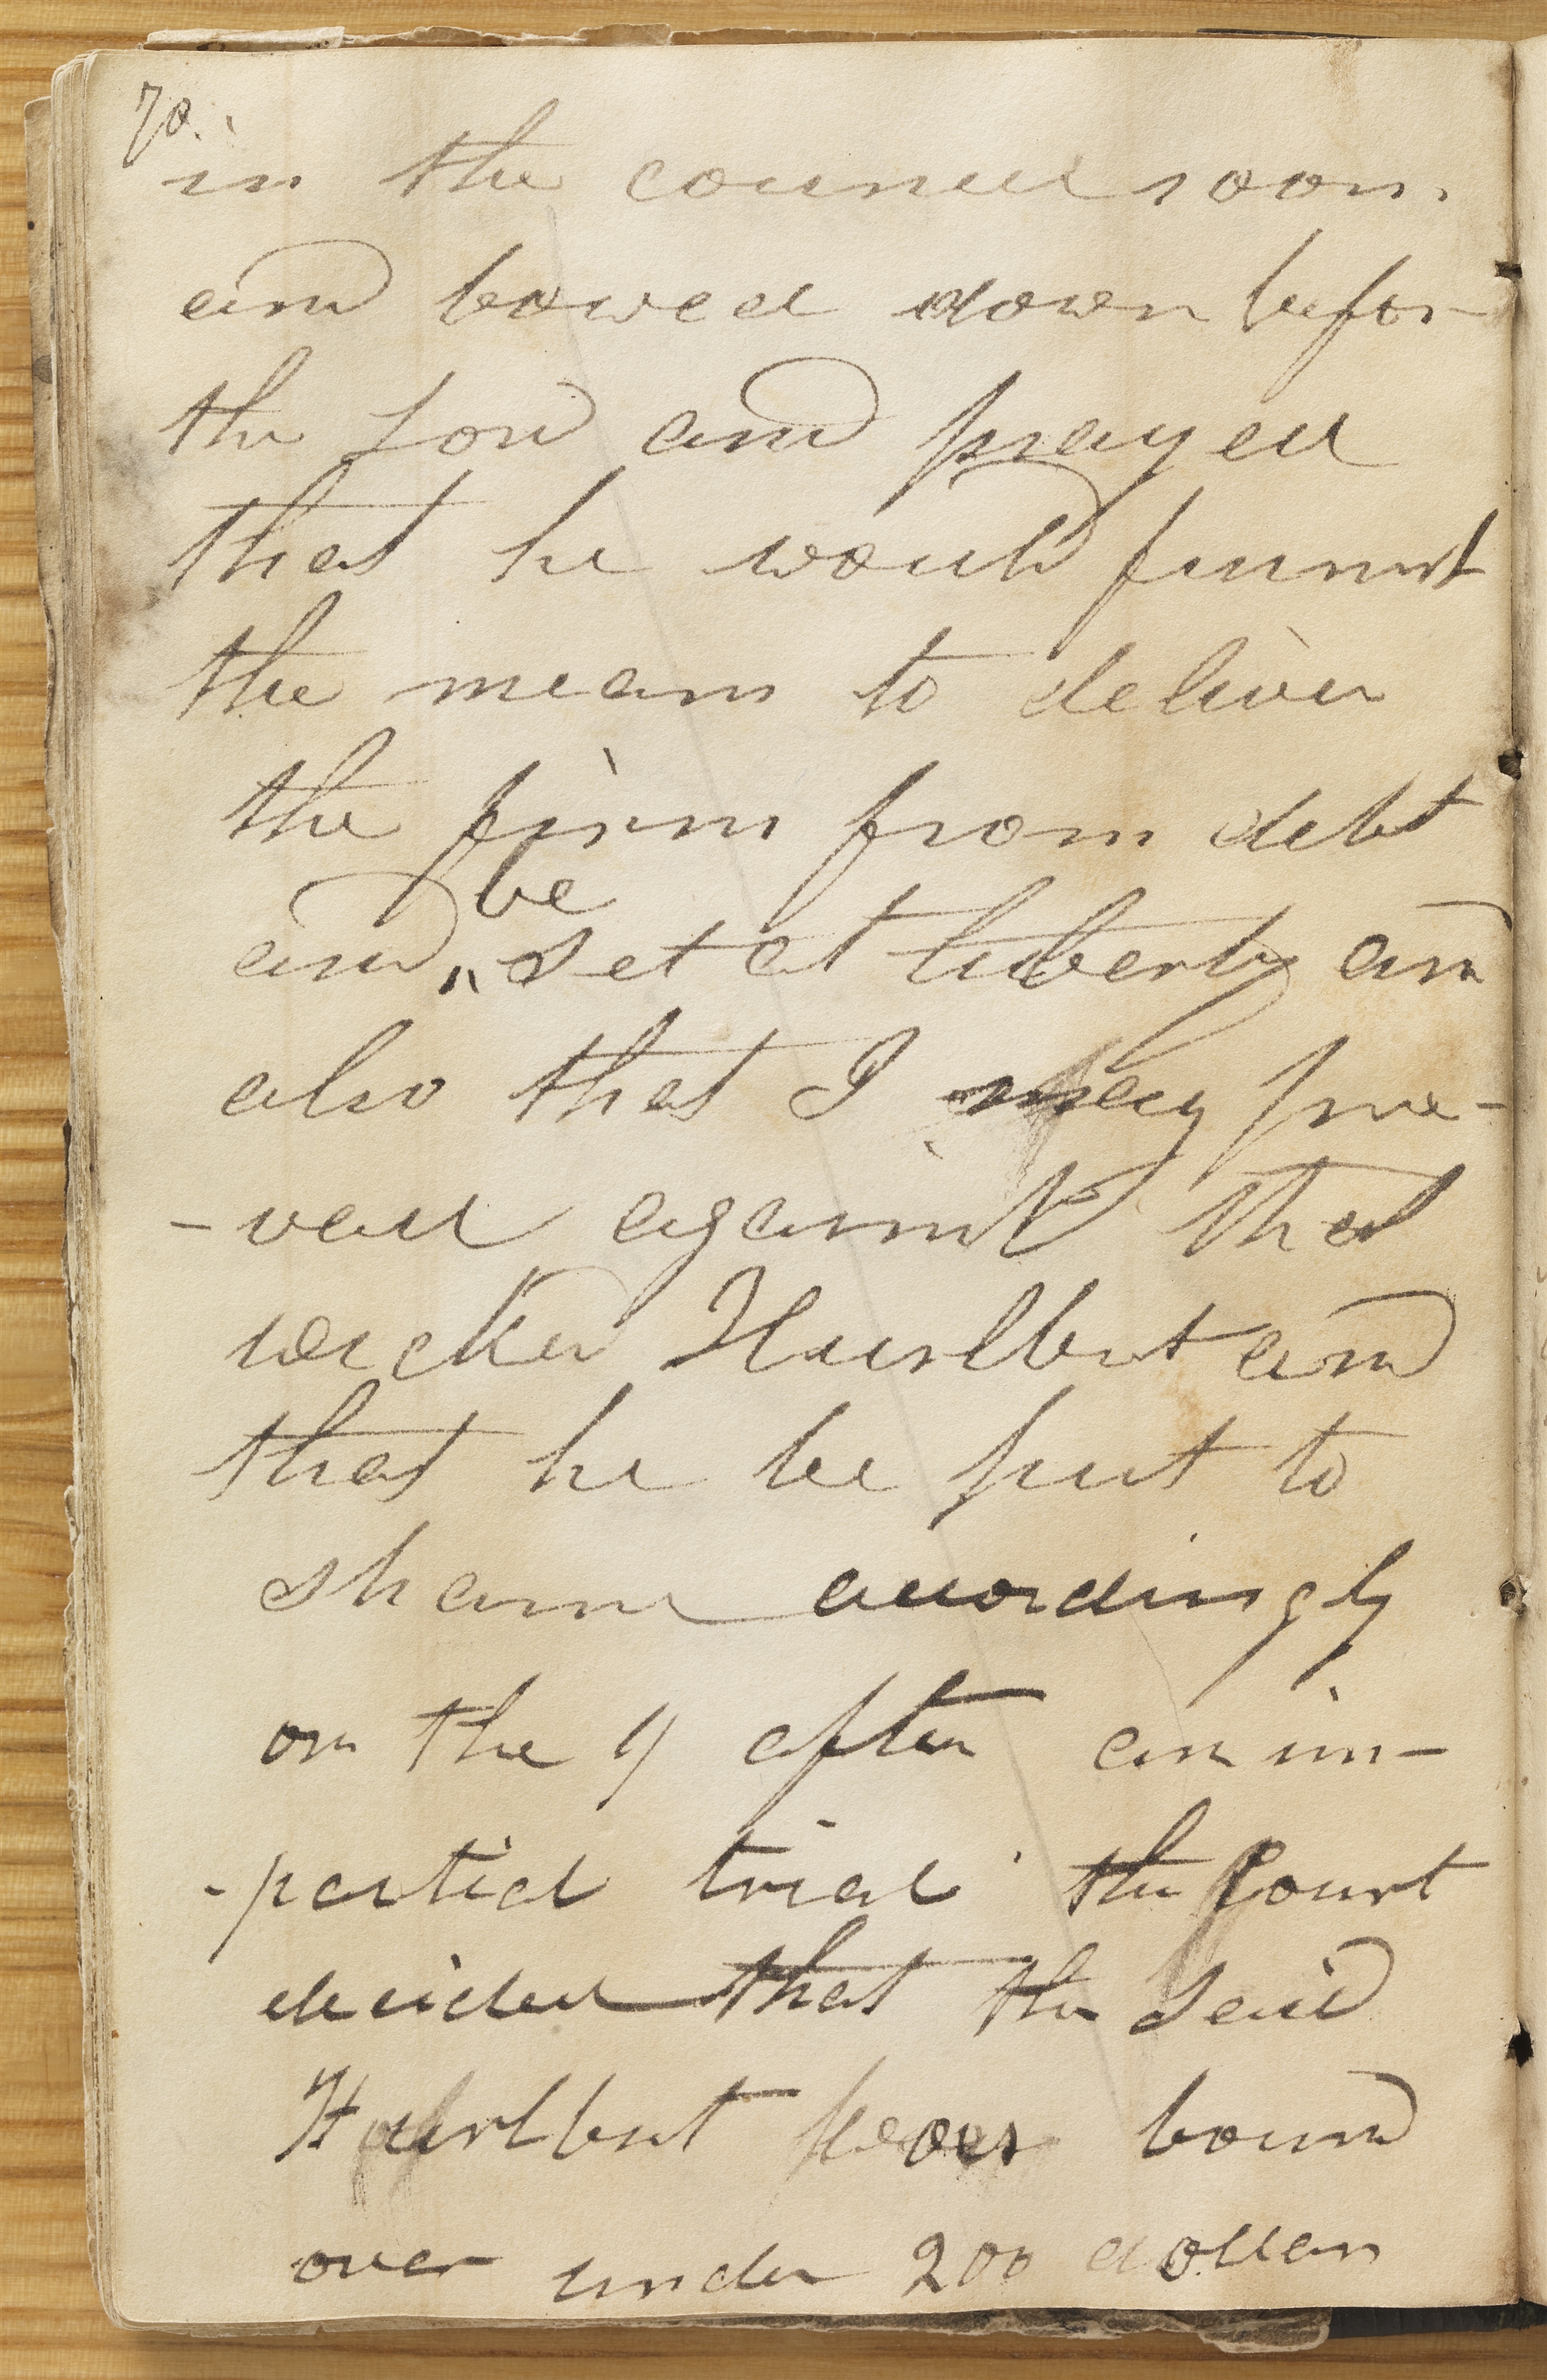 70.
in the council room
and bowed down befor
the Lord and prayed
that he would furnish
the means to deliver
the firm from debt
be
and set at liberty and
also that I may pre-
-vail against that
wicked Hurlbut and
that he be put to
shame acordingly
on the 9 after an im-
-partial trial the Court
decided that the said
Hurlbut be bound
over under 200 dollars